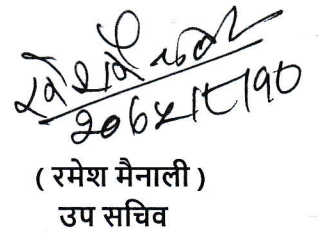 २०६५।८।१०
( रमेश मैनाली )
उप सचिव